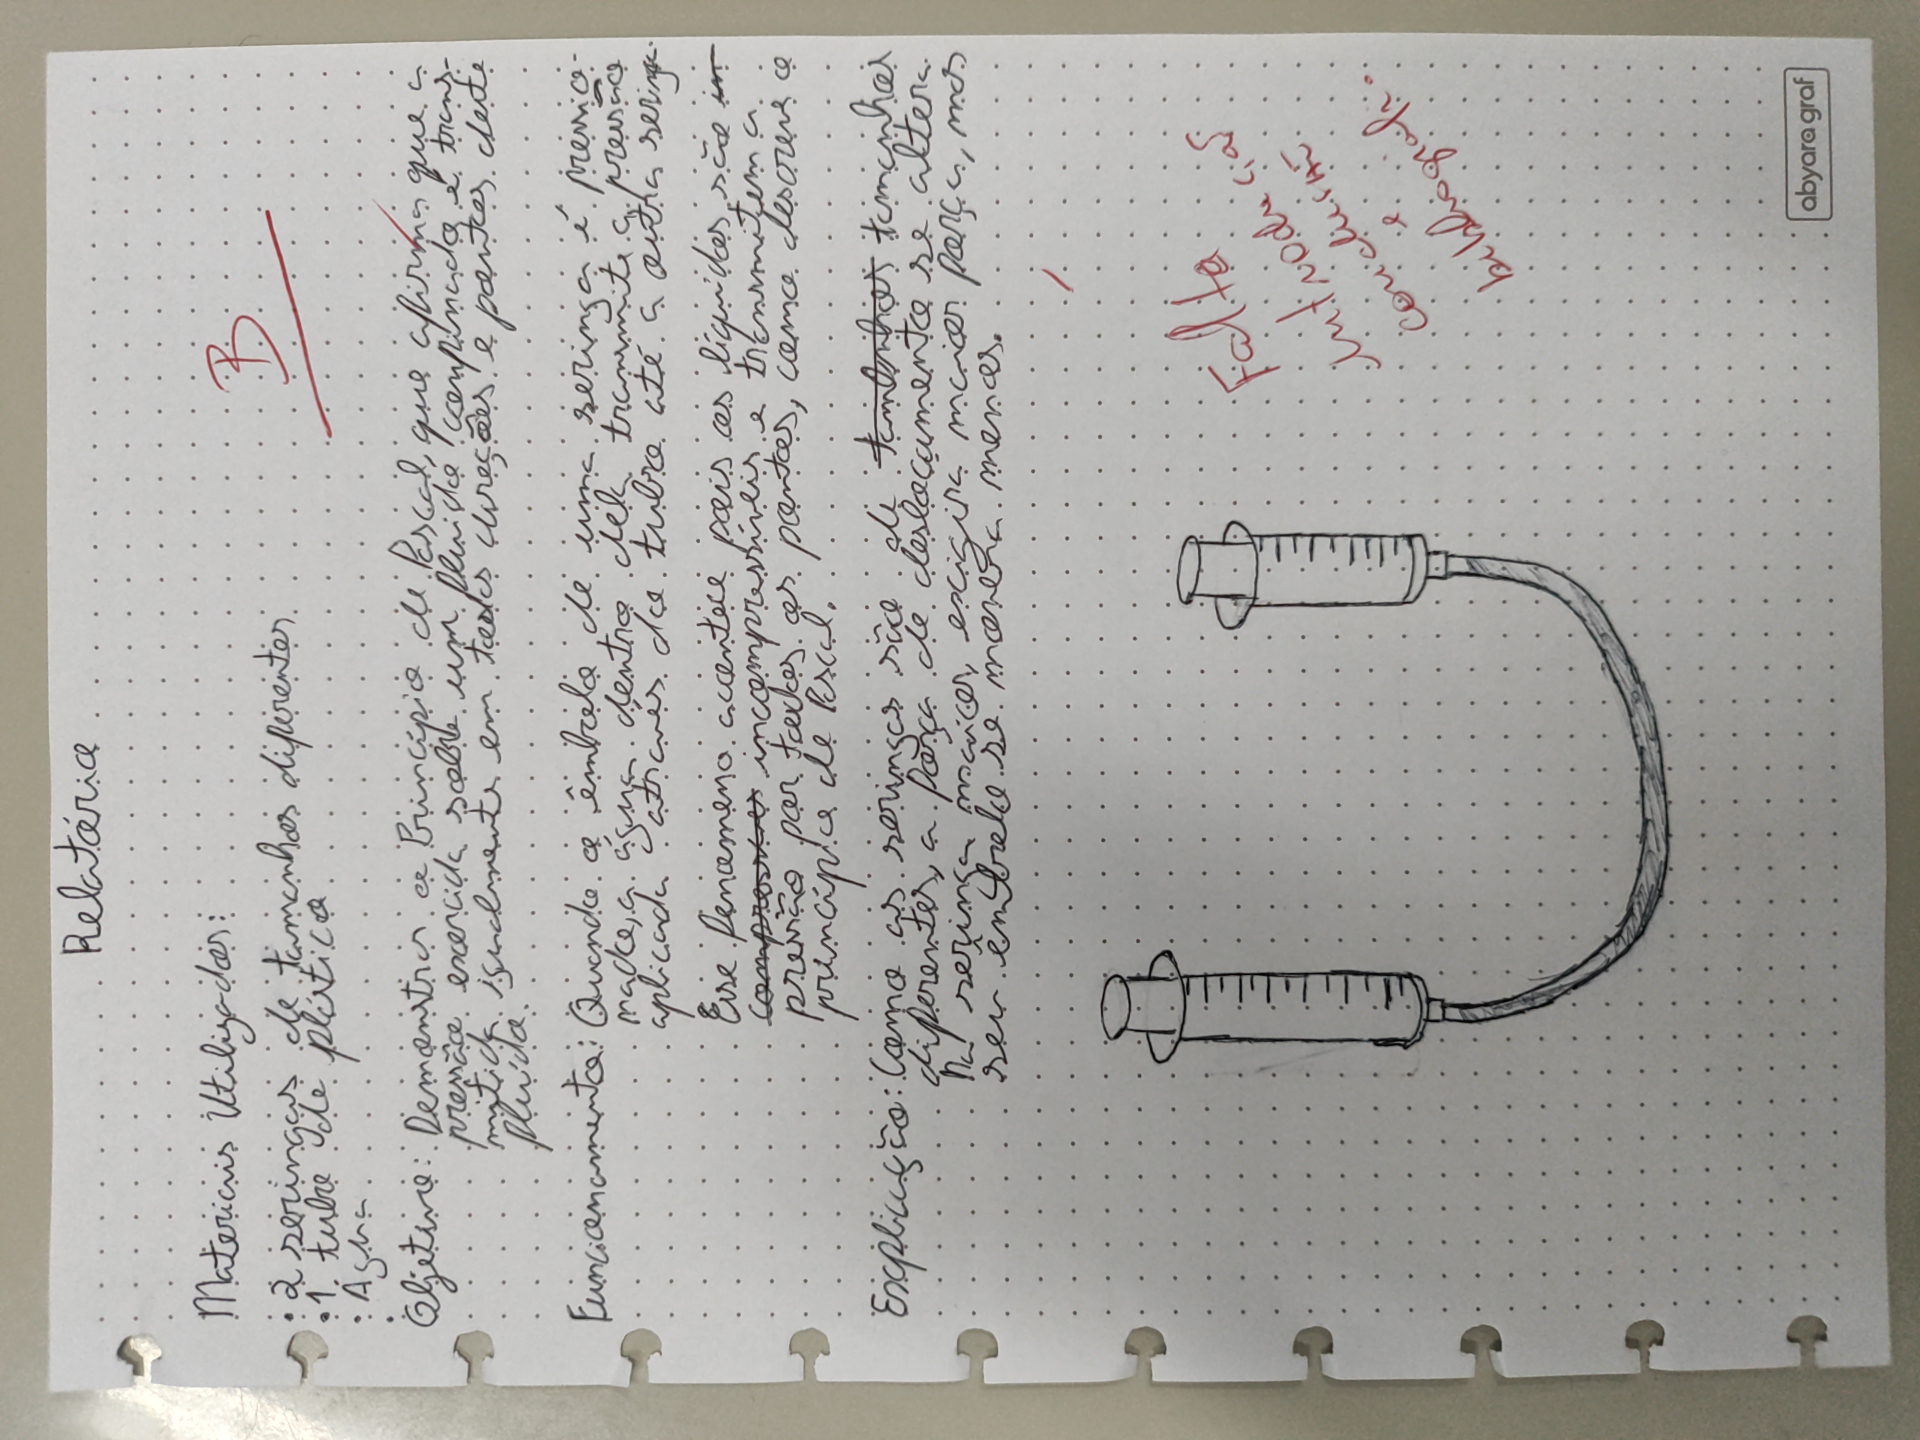 Relatório
Materiais Utilizados:
B
• 2 seringas de tamanhos diferentes
• 1 tubo de plástico
• Água
Objetivo: Demonstrar o Princípio de Pascal, que afirma que a
pressão exercida sobre um fluido confinado é trans-
mitida igualmente em todas direções e pontos deste
fluido.
Funcionamento: Quando o êmbolo de uma seringa é pressio-
nado, a água dentro dela transmite a pressão
aplicada através do tubo até a outra seringa.
Esse fenomeno acontece pois os líquidos são in
compressives incompressíveis e transmitem a
pressão por todos os pontos, como descreve o
princípio de Pascal.
Explicação: Como as seringas são de tamanhos
diferentes, a força de deslocamento se altera
Na seringa maior, exigira maior força, mas
seu êmbolo se movera menos.
Falta
introdução
conclusão
e
bibliografi.
abyara graf